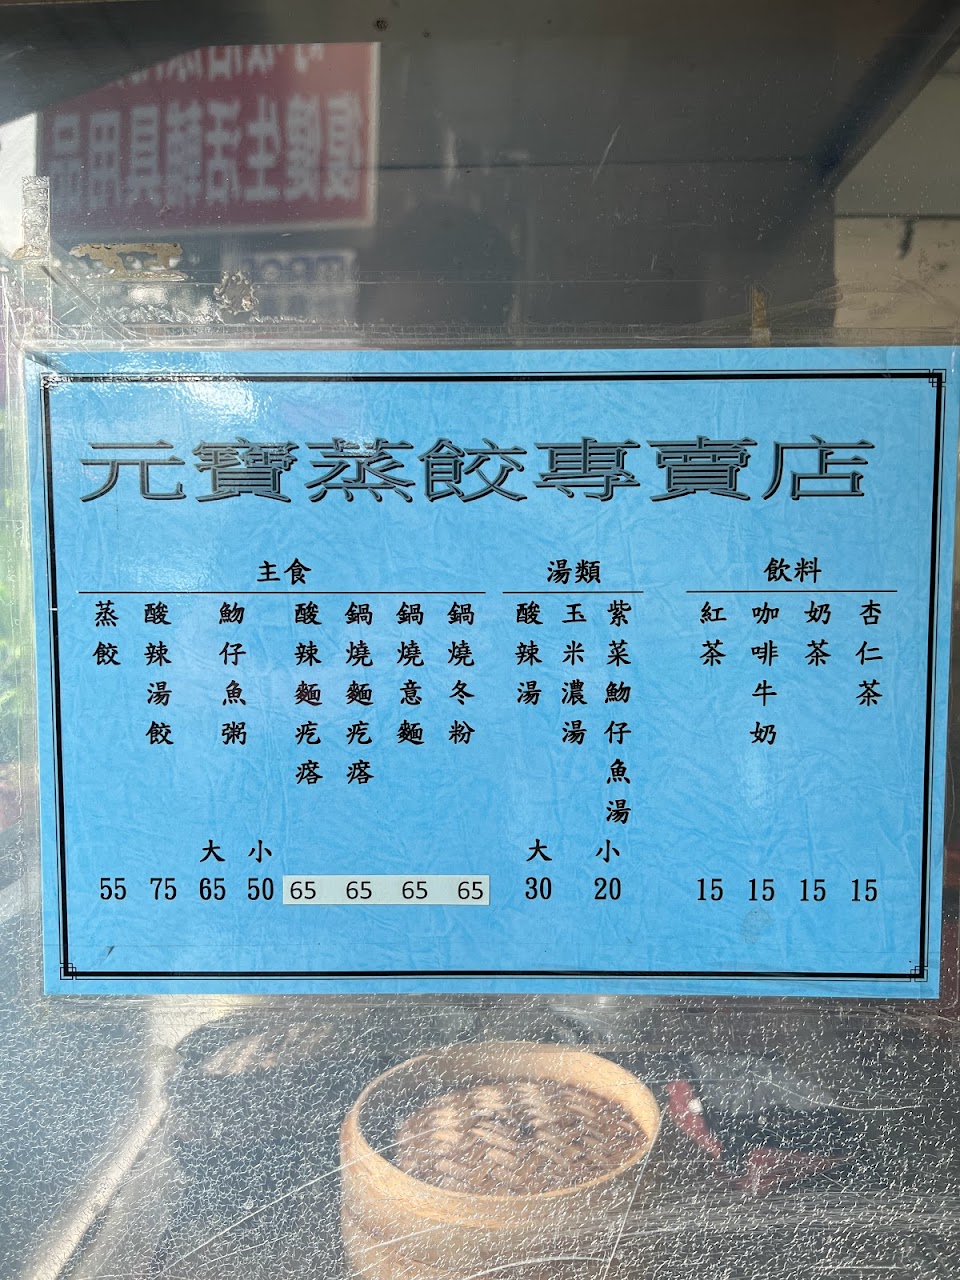 元寶蒸餃專賣店
主食
蒸餃
55
酸辣湯餃
75
魩仔魚粥
大 小
65 50
酸辣麵疙瘩
65
鍋燒麵疙瘩
65
鍋燒意麵
65
鍋燒冬粉
65
湯類
酸辣湯
玉米濃湯
紫菜魩仔魚湯
大 小
30 20
飲料
紅茶
15
咖啡牛奶
15
奶茶
15
杏仁茶
15